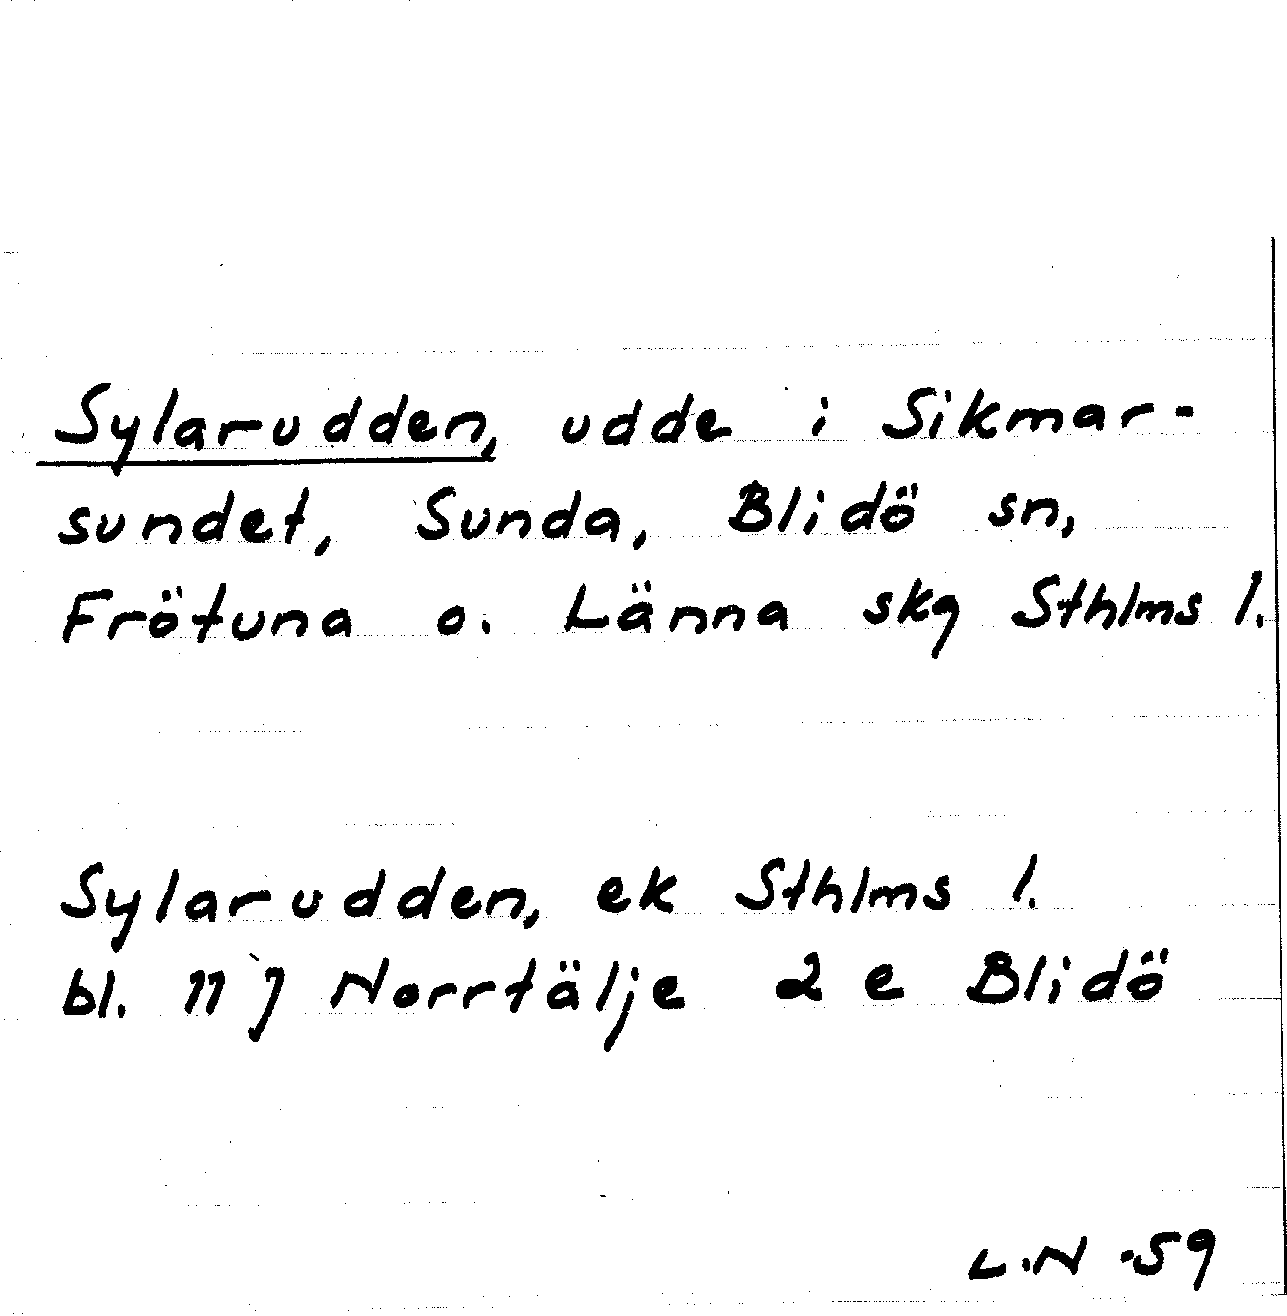 Sylarudden, udde i Sikmar-
sundet, Sunda, Blidö sn,
Frötuna o. Länna skg Sthlms l.
Sylarudden, ek Sthlms l.
bl. 11 J Norrtälje 2 e Blidö
L.N -59